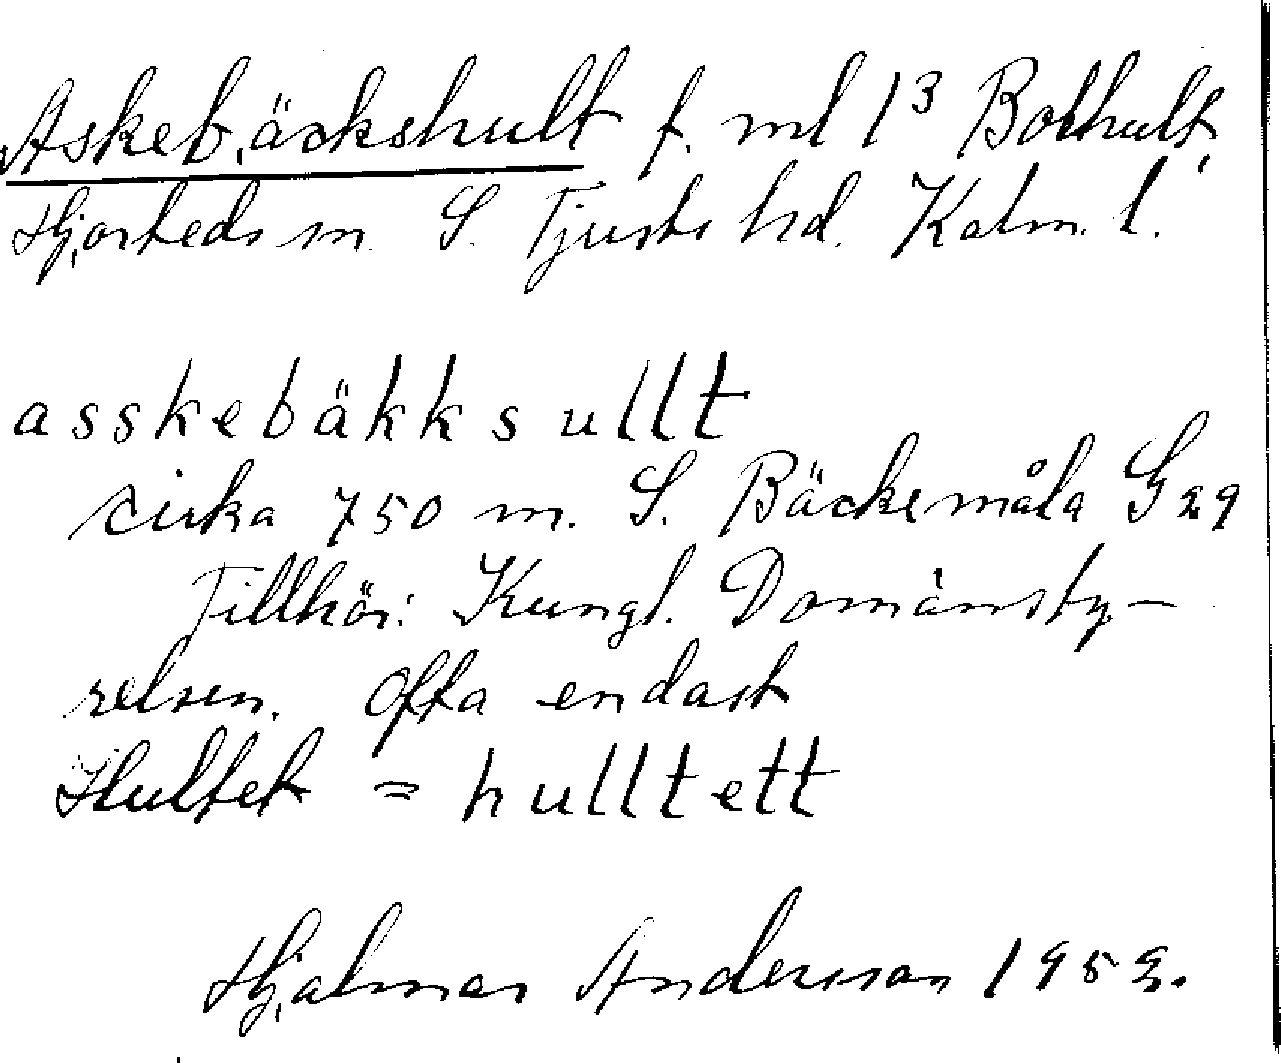 Askebäckshult f. ml 1³ Bothult,
Hjorteds sn. S. Tjusts hd. Kalm. l.
asskebäkksullt
cirka 750 m. S. Bäckemåla G29
Tillhör: Kungl. Domänsty-
relsen. Ofta endast
Hultet = hulltett
Hjalmar Andersson 1952.